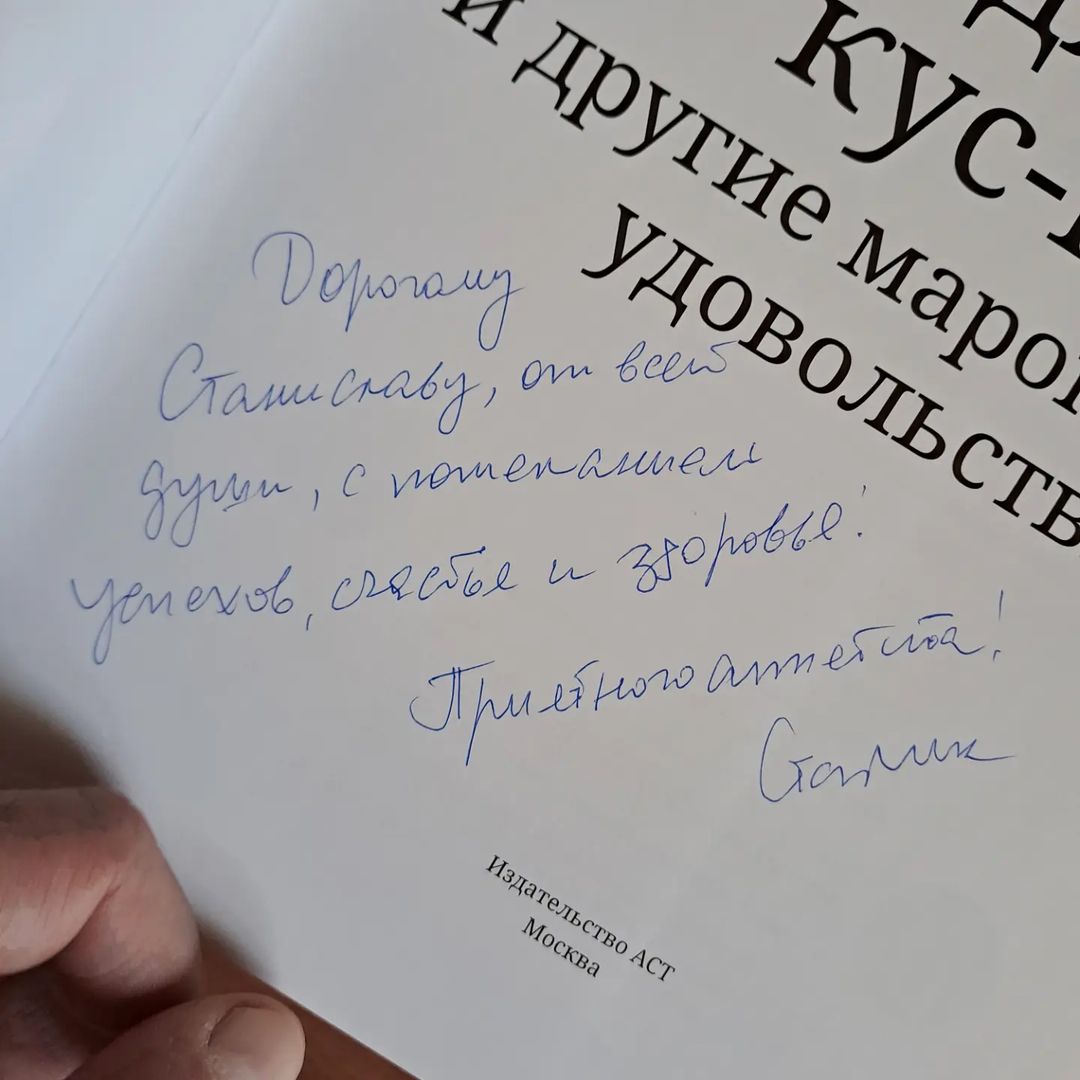 кус-
и другие маро
удовольств
Дорогому
Станиславу, от всей
души, с пожеланием
успехов, счастье и здоровье!
Приятного аппетита!
Сталик
Издательство АСТ
Москва